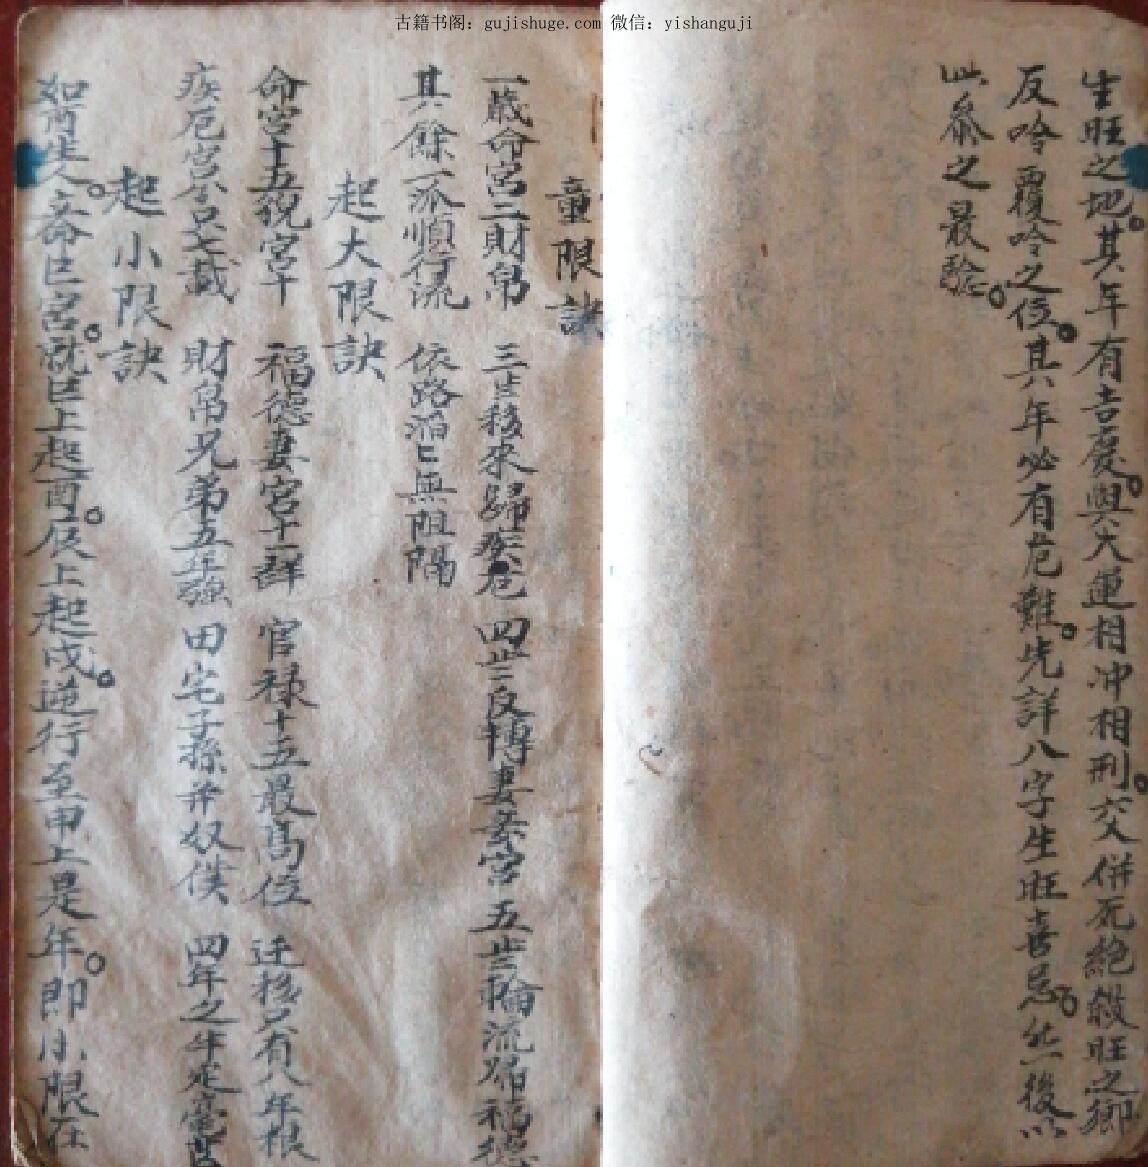 古籍书阁：gujishuge.com 微信：yishanguji
生旺之地。其年有吉慶。與大運相冲相刑。交併死絕殺旺之鄉
反吟覆吟之位。其年必有危難。先詳八字生旺喜忌。然後以
此叅之最驗。
童限訣
一歲命宮二財帛 三歨移來歸疾厄 四歨反轉妻妾宮 五歨輪流歸福德
其餘一派順行流 依路滔〻無阻隔
起大限訣
命宮十五貌宮十 福德妻宮十一詳 官禄十五最高位 迁移只有八年根
疾厄宮只七載 財帛兄弟五年強 田宅子孫并奴僕 四年之半定毫
起小限訣
如酉生人。命巳宮。就巳上起酉。辰上起戌。逆行至申上是年。即小限在